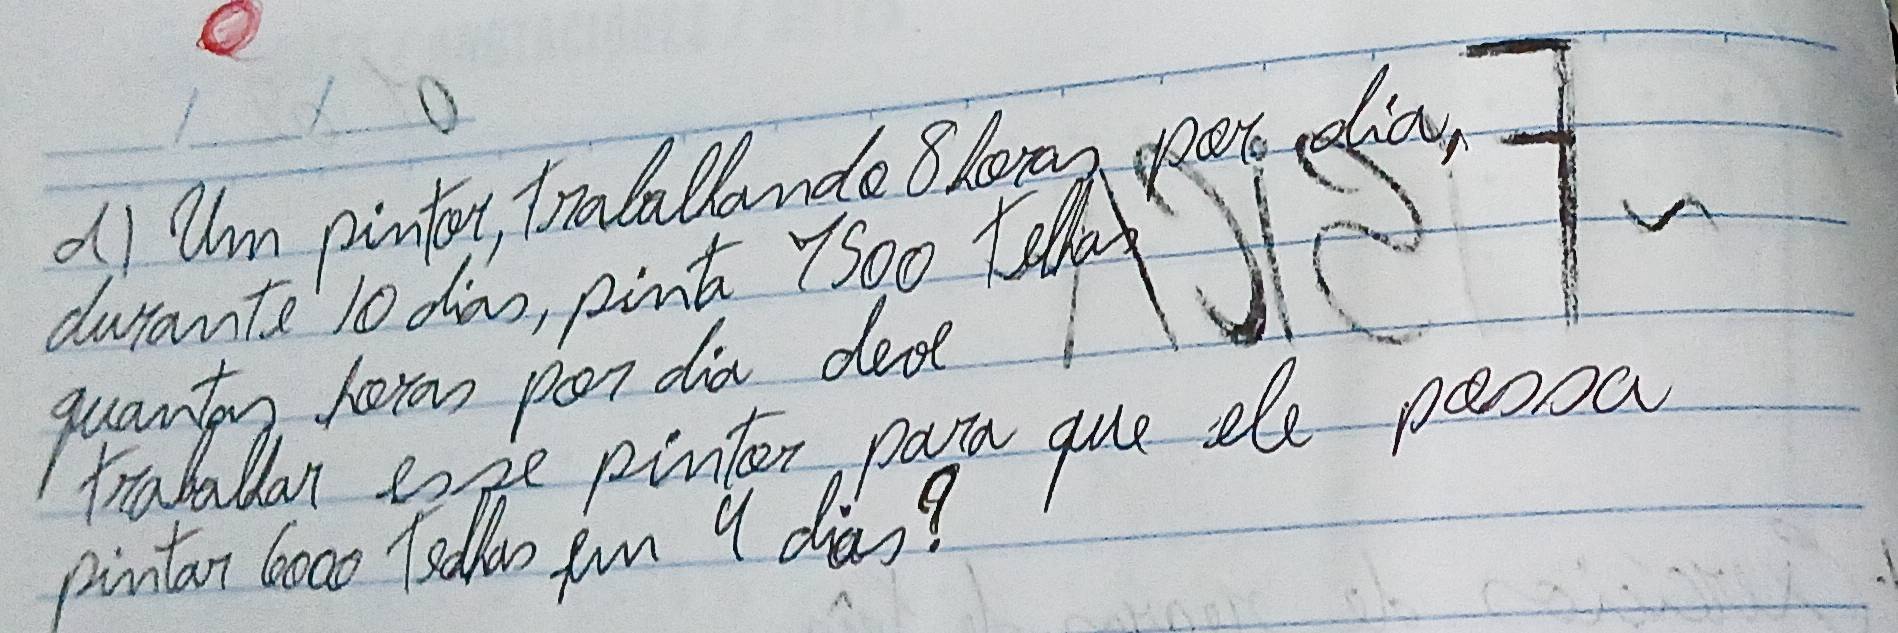 d) Um pintor, trabalhando 8 horas por dia,
durante 10 dias, pinta 7500 telhas
quantas horas por dia deve
trabalhar esse pintor para que ele possa
pintar 6000 telhas em 4 dias?